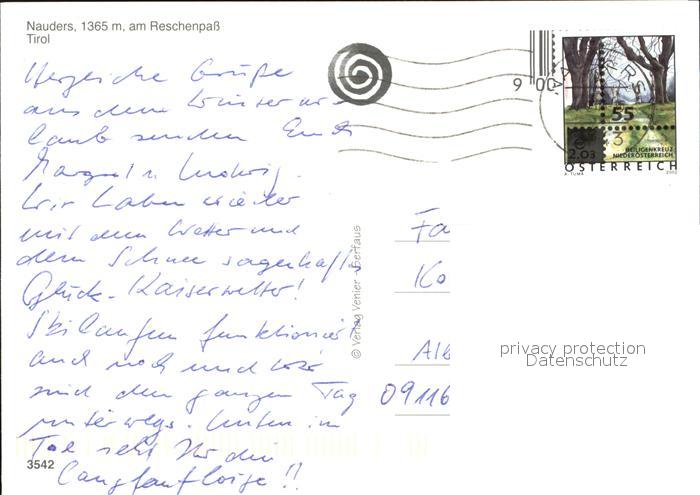 Nauders, 1365 m, am Reschenpaß
Tirol
Herzliche Grüße
aus dem Winterur-
laub senden Euch
Margret u. Ludwig.
Wir haben wieder
mit dem Wetter und
dem Schnee sagenhaftes
Glück. Kaiserwetter!
Skilaufen funktioniert
auch noch und wir
sind den ganzen Tag
unterwegs. Unten im
Tal seht Ihr die
Langlaufloipe!!
3542
© Verlag Venier - Serfaus
9 00
55
2.03
HEILIGENKREUZ
NIEDERÖSTERREICH
ÖSTERREICH
A. TUMA
2002
Fa
Ko
Alb
09116
privacy protection
Datenschutz